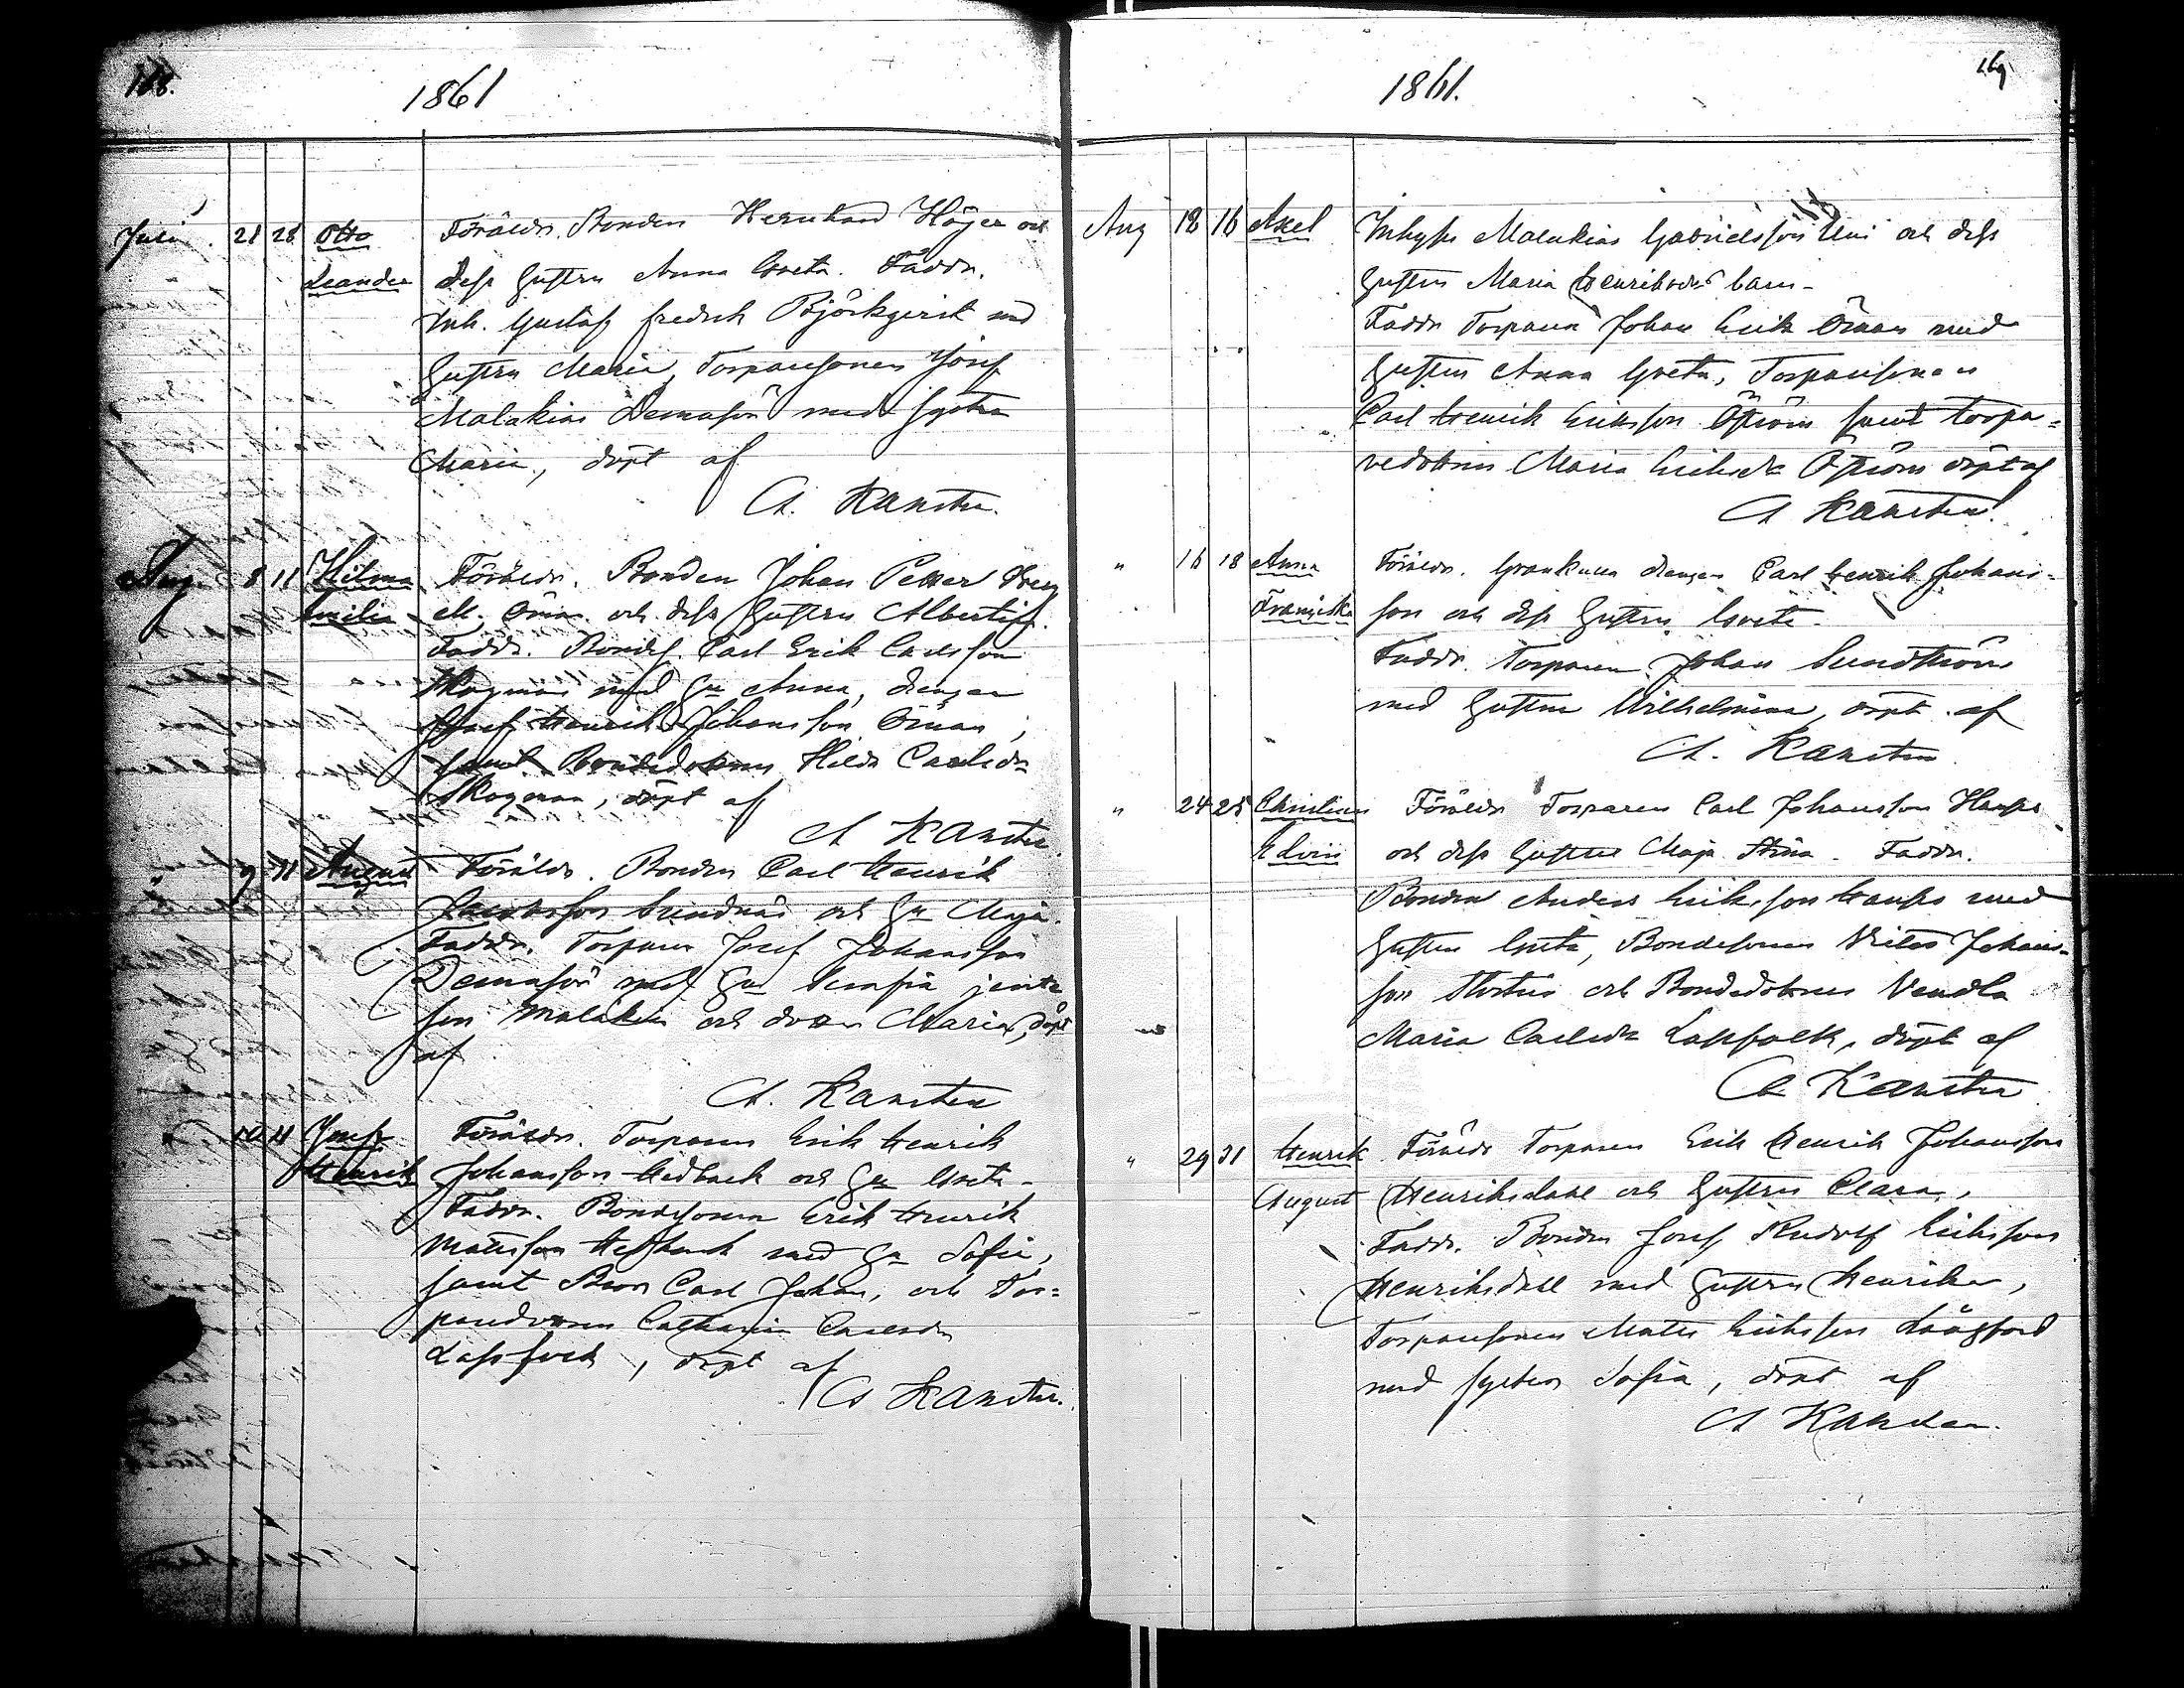 168.
1861
Juli 21 28 Otto Föräldr. Bonden Hernhard Höjer och
Leander dess hustru Anna Greta. Faddr.
Inh. Gustaf Fredrik Björkqvist med
hustru Maria, Torparesonen Josef
Malakias Demasön med syster
Maria, döpt af
A. Karsten.
Aug. 8 11 Hilma Föräldr. Bonden Johan Petter
Emilia Öman och dess hustru
Faddr. Bondes. Carl Erik Carlsson
Skogman med hu Anna, drengen
Josef Henrik Johansson Öman,
samt Bondedottren Hilda Carlsdr
Skogman, döpt af
A Karsten.
9 11 August Föräldr. Bonden Carl Henrik
Jacobsson Sundnäs och hu Maja.
Faddr. Torparen Josef Johansson
Demasön med hu Serafia jemte
son Malakias och dottren Maria, döpt
af
A. Karsten
10 11 Josef Föräldr. Torparen Erik Henrik
Henrik Johansson Hedback och hu Greta.
Faddr. Bondesonen Erik Henrik
Mattsson med hu Sofia,
samt Bror Carl Johan, och Tor=
paredottren Catharina Carlsdr
Lassfolk, döpt af
A Karsten.
169
1861.
Aug 12 16 Axel Inhyses Malakias Gabrielsson och dess
hustru Maria Henriksdr barn.
Faddr Torparen Johan Erik Öman med
hustru Anna Greta, Torparesonen
Carl Henrik Eriksson Öström samt torpa=
redottren Maria Eriksdr Öström döpt af
A Karsten.
" 16 18 Anna Föräldr. drengen Carl Henrik Johans=
Franziska son och dess hustru Greta.
Faddr. Torparen Johan Sundström
med hustru Wilhelmina, döpt af
A. Karsten.
" 24 25 Christina Föräldr Torparen Carl Johansson
Elvira och dess hustru Maja Stina. Faddr.
Bonden Anders Eriksson med
hustru Greta, Bondesonen Johans=
son och Bondedottren Vendla
Maria Carlsdr Lassfolk, döpt af
A Karsten
" 29 31 Henrik Föräldr Torparen Erik Henrik Johansson
August Henriksdahl och hustru Clara,
Faddr. Bonden Josef Rudolf Eriksson
Henriksdahl med hustru Henrika,
Torparesonen Matts Eriksson
med syster Sofia, döpt af
A Karsten.